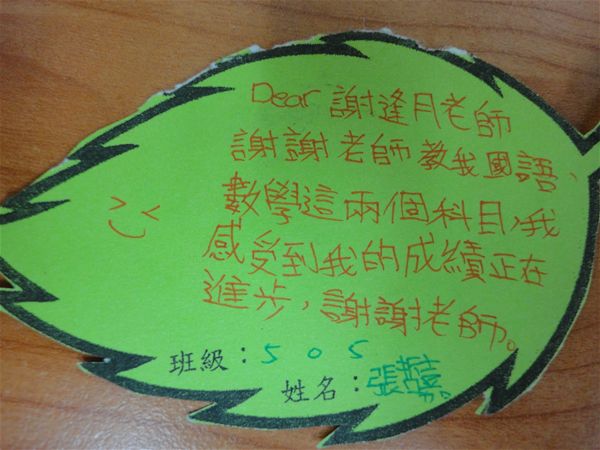 Dear 謝逢月老師
謝謝老師教我國語、
數學這兩個科目,我
感受到我的成績正在
進步,謝謝老師。
班級:505
姓名:張哲嘉。